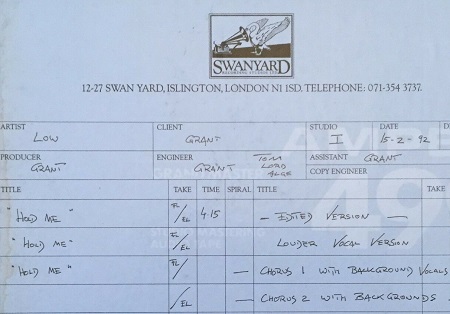 SWANYARD
RECORDING STUDIOS LTD
12-27 SWAN YARD, ISLINGTON, LONDON N1 1SD. TELEPHONE: 071-354 3737.
ARTIST LOW CLIENT GRANT STUDIO I DATE 15-2-92 D
PRODUCER GRANT ENGINEER GRANT TOM LORD ALGE ASSISTANT GRANT
COPY ENGINEER
TITLE TAKE TIME SPIRAL TITLE TAKE
"HOLD ME" FL/EL 4.15 — EDITED VERSION —
"HOLD ME" FL/EL LOUDER VOCAL VERSION
"HOLD ME" FL/ — CHORUS 1 WITH BACKGROUND VOCALS
/EL — CHORUS 2 WITH BACKGROUNDS
AMPEX
GRAND MASTER
49
AUDIO TAPE